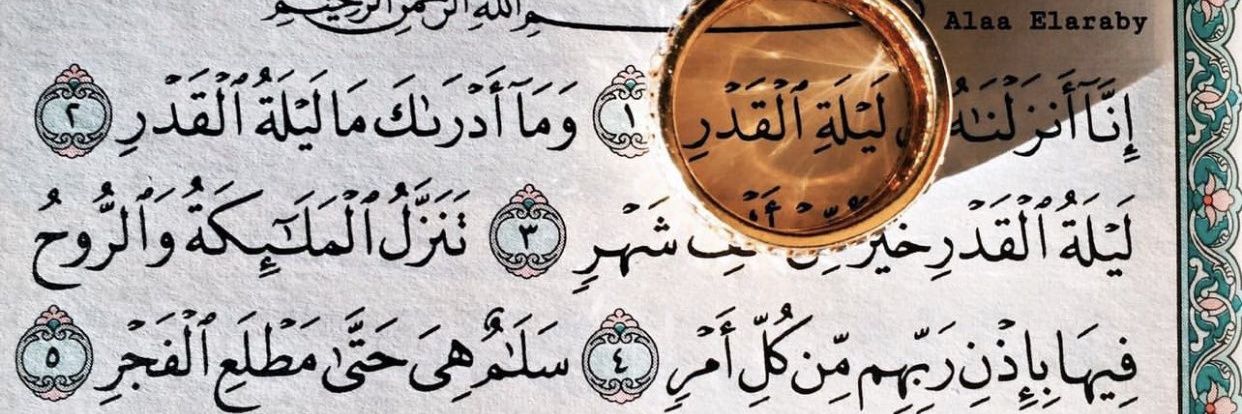 بِسْمِ ٱللَّهِ ٱلرَّحْمَٰنِ ٱلرَّحِيمِ
Alaa Elaraby
إِنَّآ أَنزَلْنَٰهُ لَيْلَةِ ٱلْقَدْرِ ١ وَمَآ أَدْرَىٰكَ مَا لَيْلَةُ ٱلْقَدْرِ ٢
لَيْلَةُ ٱلْقَدْرِ خَيْرٌ شَهْرٍ ٣ تَنَزَّلُ ٱلْمَلَٰٓئِكَةُ وَٱلرُّوحُ
فِيهَا بِإِذْنِ رَبِّهِم مِّن كُلِّ أَمْرٍ ٤ سَلَٰمٌ هِىَ حَتَّىٰ مَطْلَعِ ٱلْفَجْرِ ٥